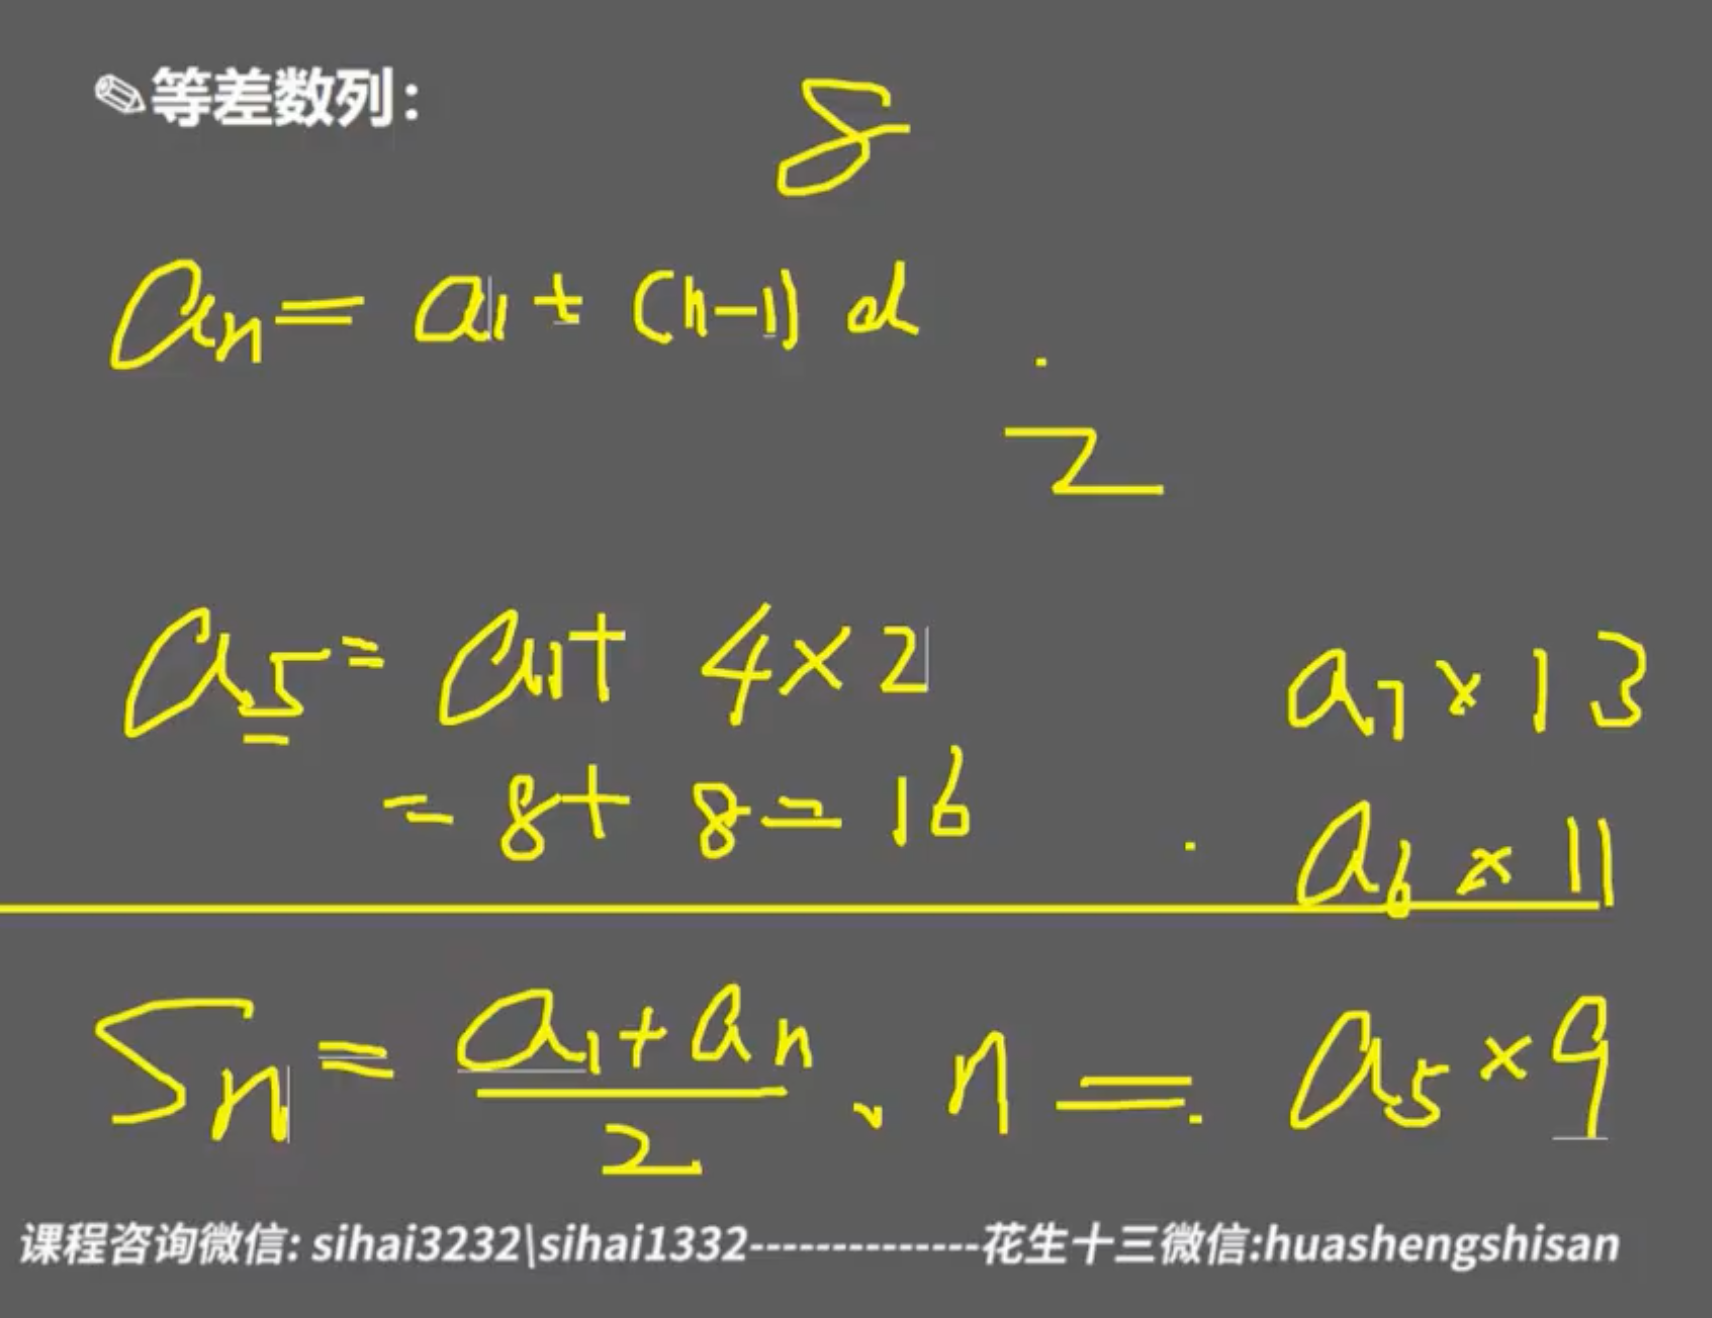 等差数列：
8
an = a1 + (n-1) d
2
a5 = a1 + 4 × 2
= 8 + 8 = 16
a7 × 13
a6 × 11
Sn = (a1 + an)/2 · n = a5 × 9
课程咨询微信: sihai3232\sihai1332--------------花生十三微信:huashengshisan